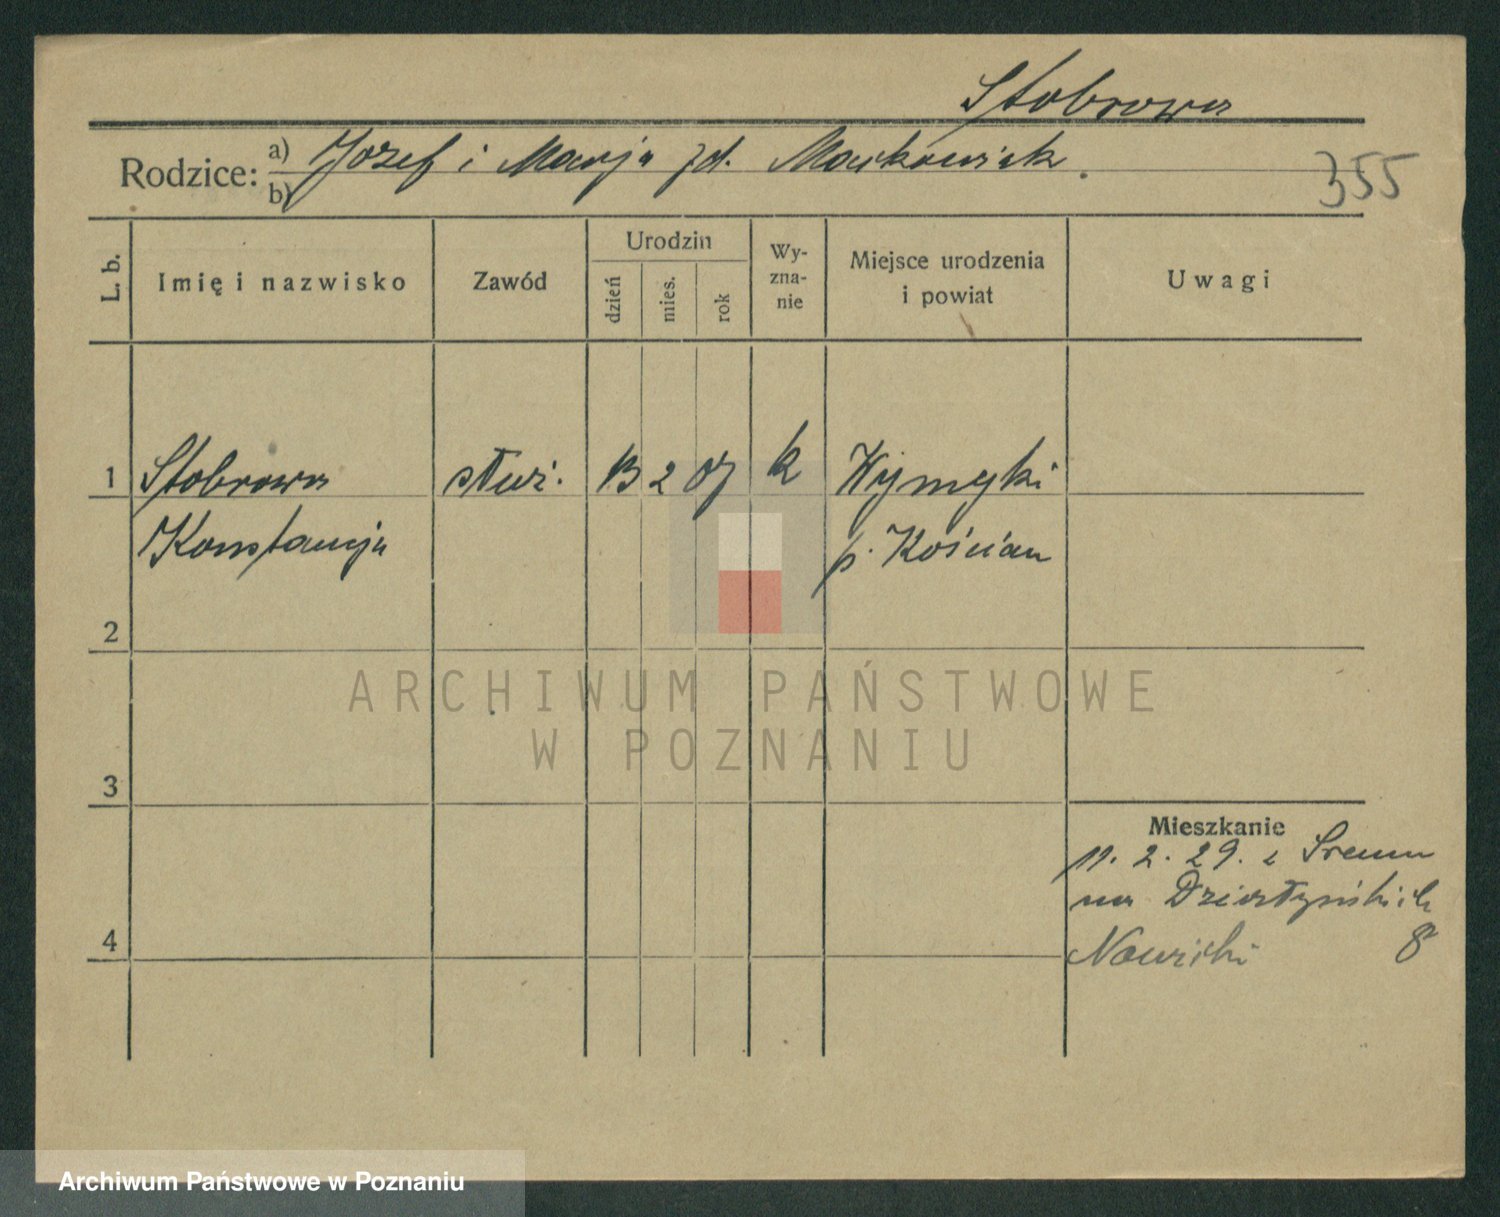 Stobrowa
Rodzice: a) Józef i Marja zd. Maćkowiak.
b)
355
L. b.
Imię i nazwisko
Zawód
Urodzin
dzień
mies.
rok
Wy-
zna-
nie
Miejsce urodzenia
i powiat
Uwagi
1 Stobrowa służ. 13 2 07 k Wymysłki
Konstancja p. Kościan
2
3
4
Mieszkanie
11. 2. 29. z Śremu
na Działyńskich
Nowicki 8
ARCHIWUM PAŃSTWOWE
W POZNANIU
Archiwum Państwowe w Poznaniu